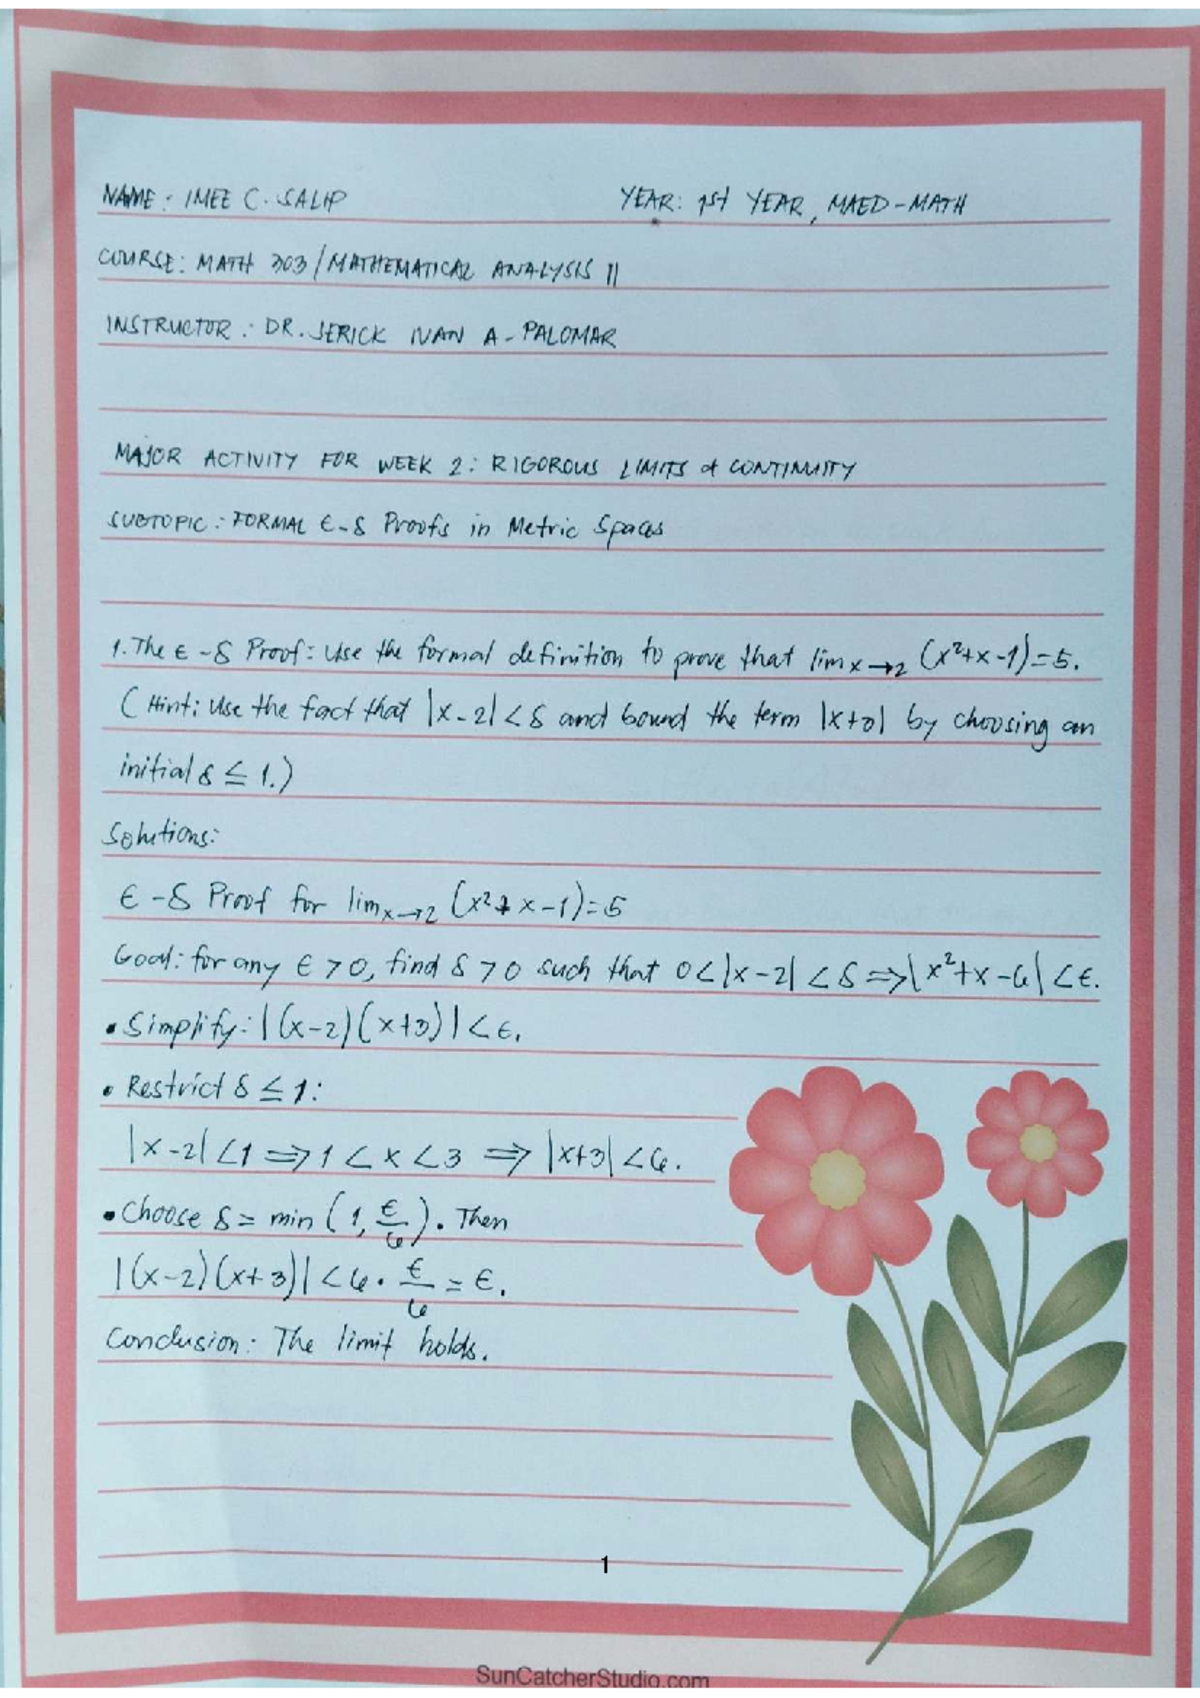 NAME: IMEE C. SALIP YEAR: 1st YEAR, MAED-MATH
COURSE: MATH 303/MATHEMATICAL ANALYSIS II
INSTRUCTOR: DR. JERICK IVAN A. PALOMAR
MAJOR ACTIVITY FOR WEEK 2: RIGOROUS LIMITS & CONTINUITY
SUBTOPIC: FORMAL ϵ-δ Proofs in Metric Spaces
1. The ϵ-δ Proof: Use the formal definition to prove that lim x→2 (x²+x-1)=5.
(Hint: Use the fact that |x-2|<δ and bound the term |x+3| by choosing an
initial δ ≤ 1.)
Solutions:
ϵ-δ Proof for lim x→2 (x²+x-1)=5
Goal: for any ϵ>0, find δ>0 such that 0<|x-2|<δ⇒|x²+x-6|<ϵ.
• Simplify: |(x-2)(x+3)|<ϵ.
• Restrict δ ≤ 1:
|x-2|<1⇒1<x<3⇒|x+3|<6.
• Choose δ = min (1, ϵ/6). Then
|(x-2)(x+3)|<6·ϵ/6=ϵ.
Conclusion: The limit holds.
1
SunCatcherStudio.com